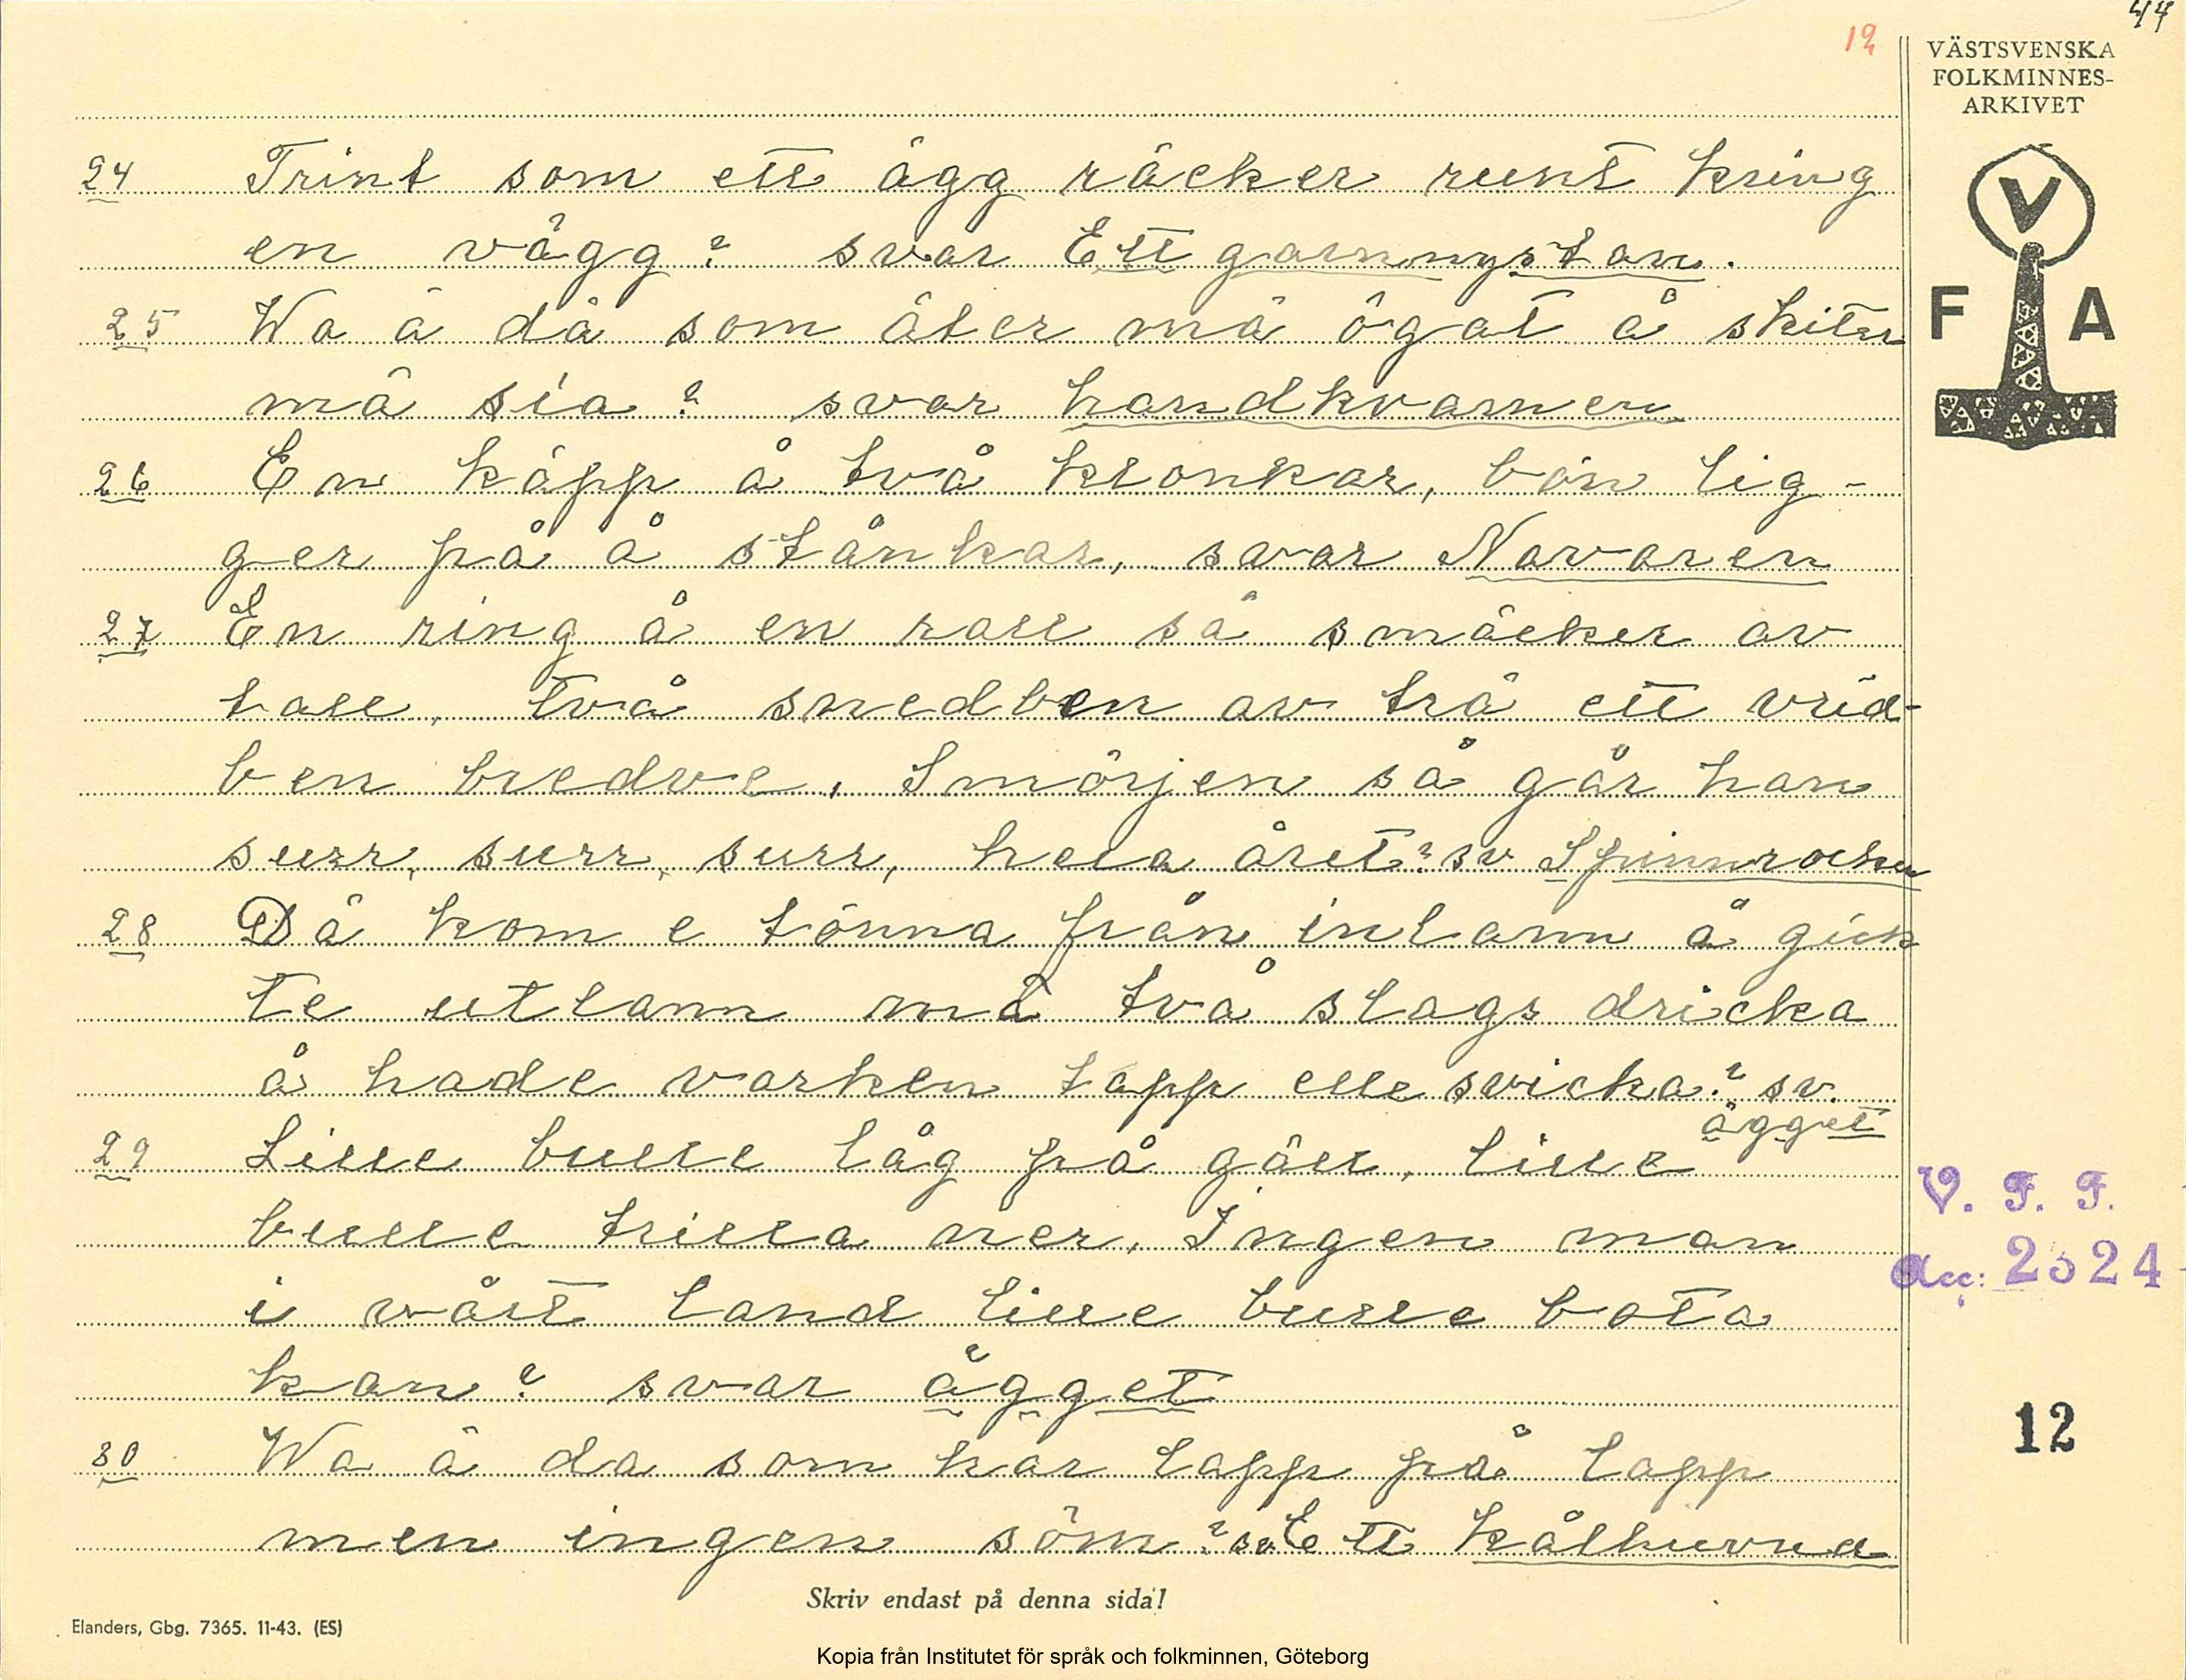 44
12
VÄSTSVENSKA
FOLKMINNES-
ARKIVET
V
F A
24 Trint som ett ägg räcker runt kring
en vägg? svar Ett garnnystan.
25 Wa ä dä som äter mä ögat å skiter
mä sia? svar handkvarnen
26 En käpp å två kronkar, bön lig-
ger på å stånkar, svar Navaren
27 En ring å en rall så smäcker av
tall, två snedben av trä ett vrid-
ben bredve, Smörjen så går han
surr, surr, surr, hela året? sv Spinnrocken
28 Dä kom e tönna från inlann å gick
te utlann mä två slags dricka
å hade varken tapp elle svicka? sv.
ägget
29 Lille bulle låg på gäll, lille
bulle trilla ner, Ingen man
i vårt land lille bulle bota
kan? svar ägget
30 Wa ä da som har lapp på lapp
men ingen söm? sv Ett kålhuvud
V. F. F.
Acc: 2324
12
Skriv endast på denna sida!
Elanders, Gbg. 7365. 11-43. (ES)
Kopia från Institutet för språk och folkminnen, Göteborg